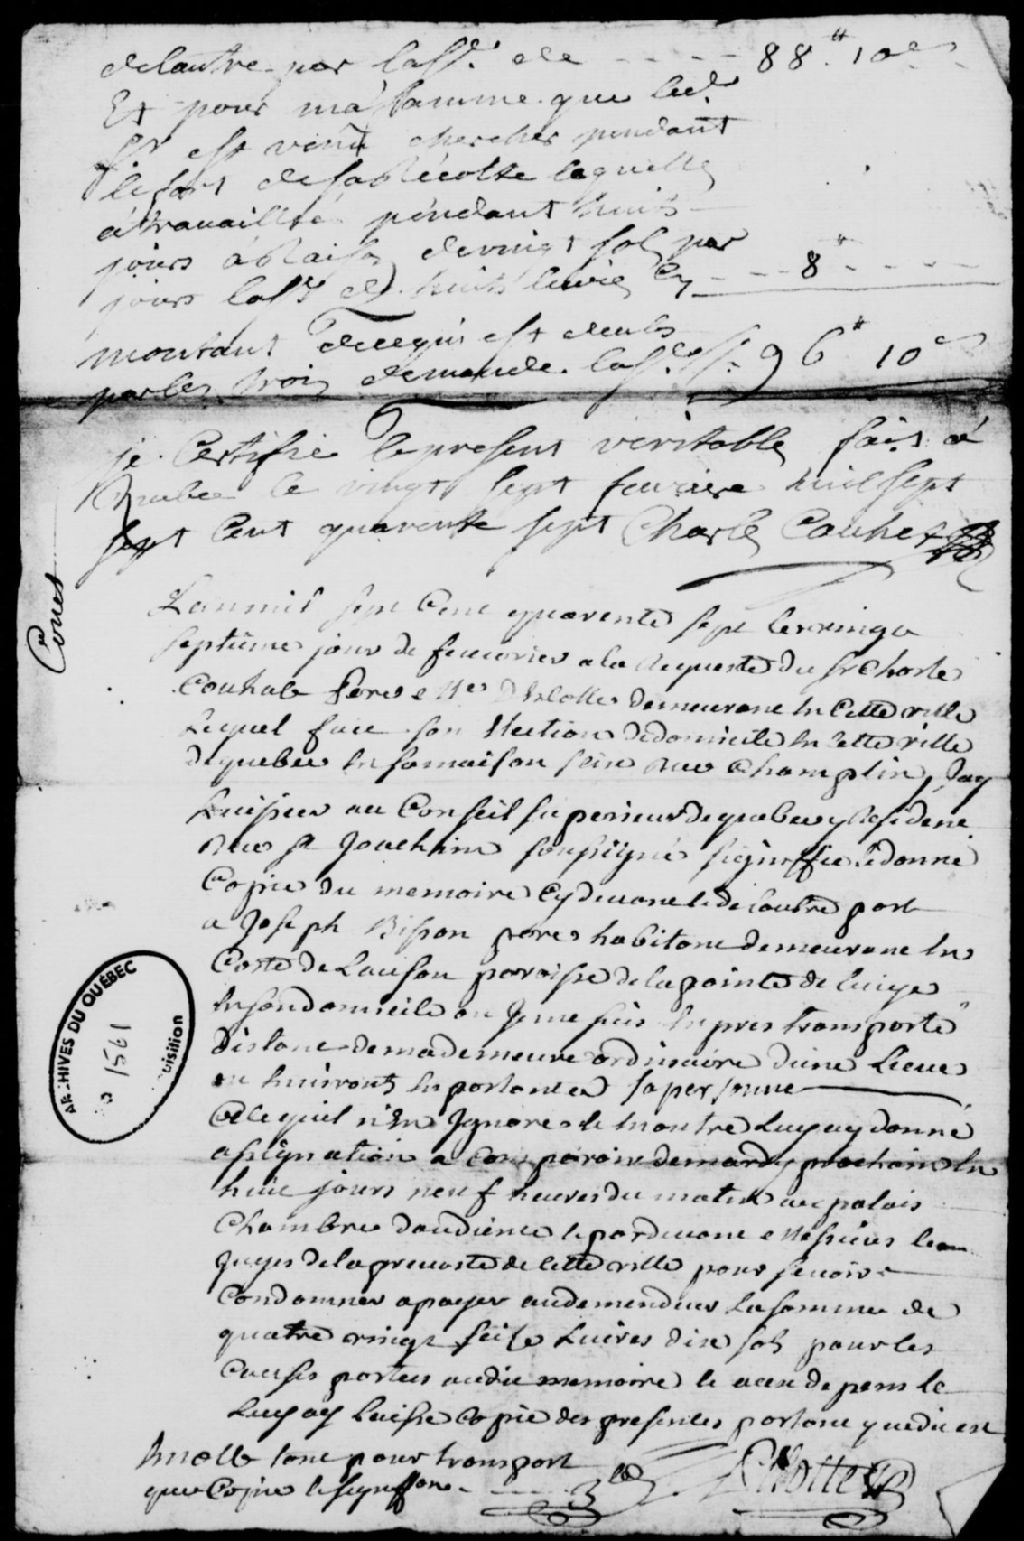 delautre par laS.e de - - - - 88.# 10 s
Et pour ma famme que led.
Sr est venu chercher pendant
le fort de sa Récolte laquelle
à travaillié pendant huits
jours à Raison de vingt sols par
jours laS.e de huits livre Cy - - - 8.# - - - -
montant de ce qui est deub
par les trois demande. laS.e 96# 10 s
je Certifie le present veritable fait à
Quebec le vingt sept fevrier mil sept
sept Cent quarente sept Charle Couhet
Couet
Lan mil sept Cent quarente sept le vingt
septieme jour de fevrier a la Requeste du sr Charle
Couhate demeurant En Cette ville
Lequel fait son Election de domicile En Cette ville
de quebec En sa maison size Rue Champlin, Jay
huissier au Conseil superieur de quebec y Residant
Rue st Joachim soussigné signiffié et donné
Copie du memoire Cy devant et de lautre part
a Joseph Bisson pere habitant demeurant En
Coste de Lauson paroisse de la pointe de Levi
En son domicile ou Je me suis Exprés transporté
distant de ma demeure ordinaire d'une Lieue
ou Environt En parlant a sa personne
a Ce quil n'En Ignore et En outre Luy ay donné
assignation a Comparoir de mardy prochain En
huit jours neuf heures du matin au palais
Chambre d'audience et pardevant Messieurs les
Juges de la prevosté de Cette ville pour se voir
Condamner a payer au demendeur La somme de
quatre vingt seize Livres dix sols pour les
Causes portées audit memoire et aux depens et
Luy ay Laissé Copie des presentes parlant que dit est
En Elle tant pour transport
que Copie et signiffion - - - - 3
ARCHIVES DU QUÉBEC
1561